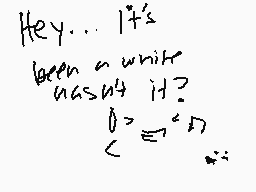 Hey... It's
been a while
hasn't it?